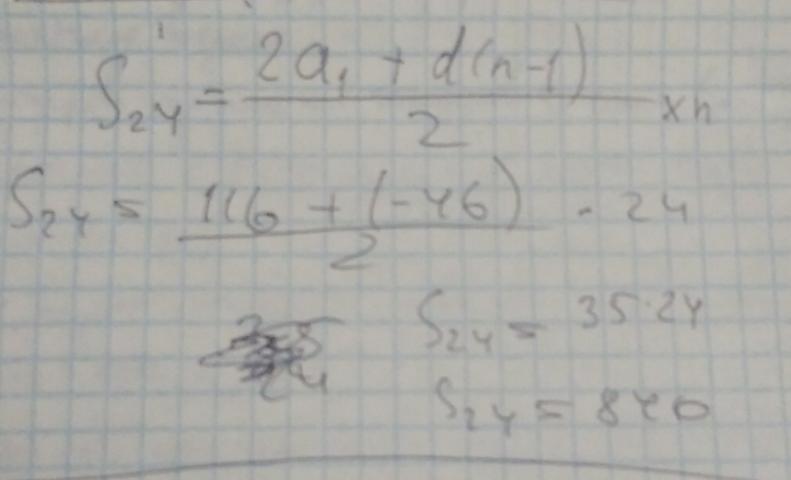 S₂₄ = (2a₁ + d(n-1))/2 × n
S₂₄ = (116 + (-46))/2 · 24
S₂₄ = 35·24
S₂₄ = 840